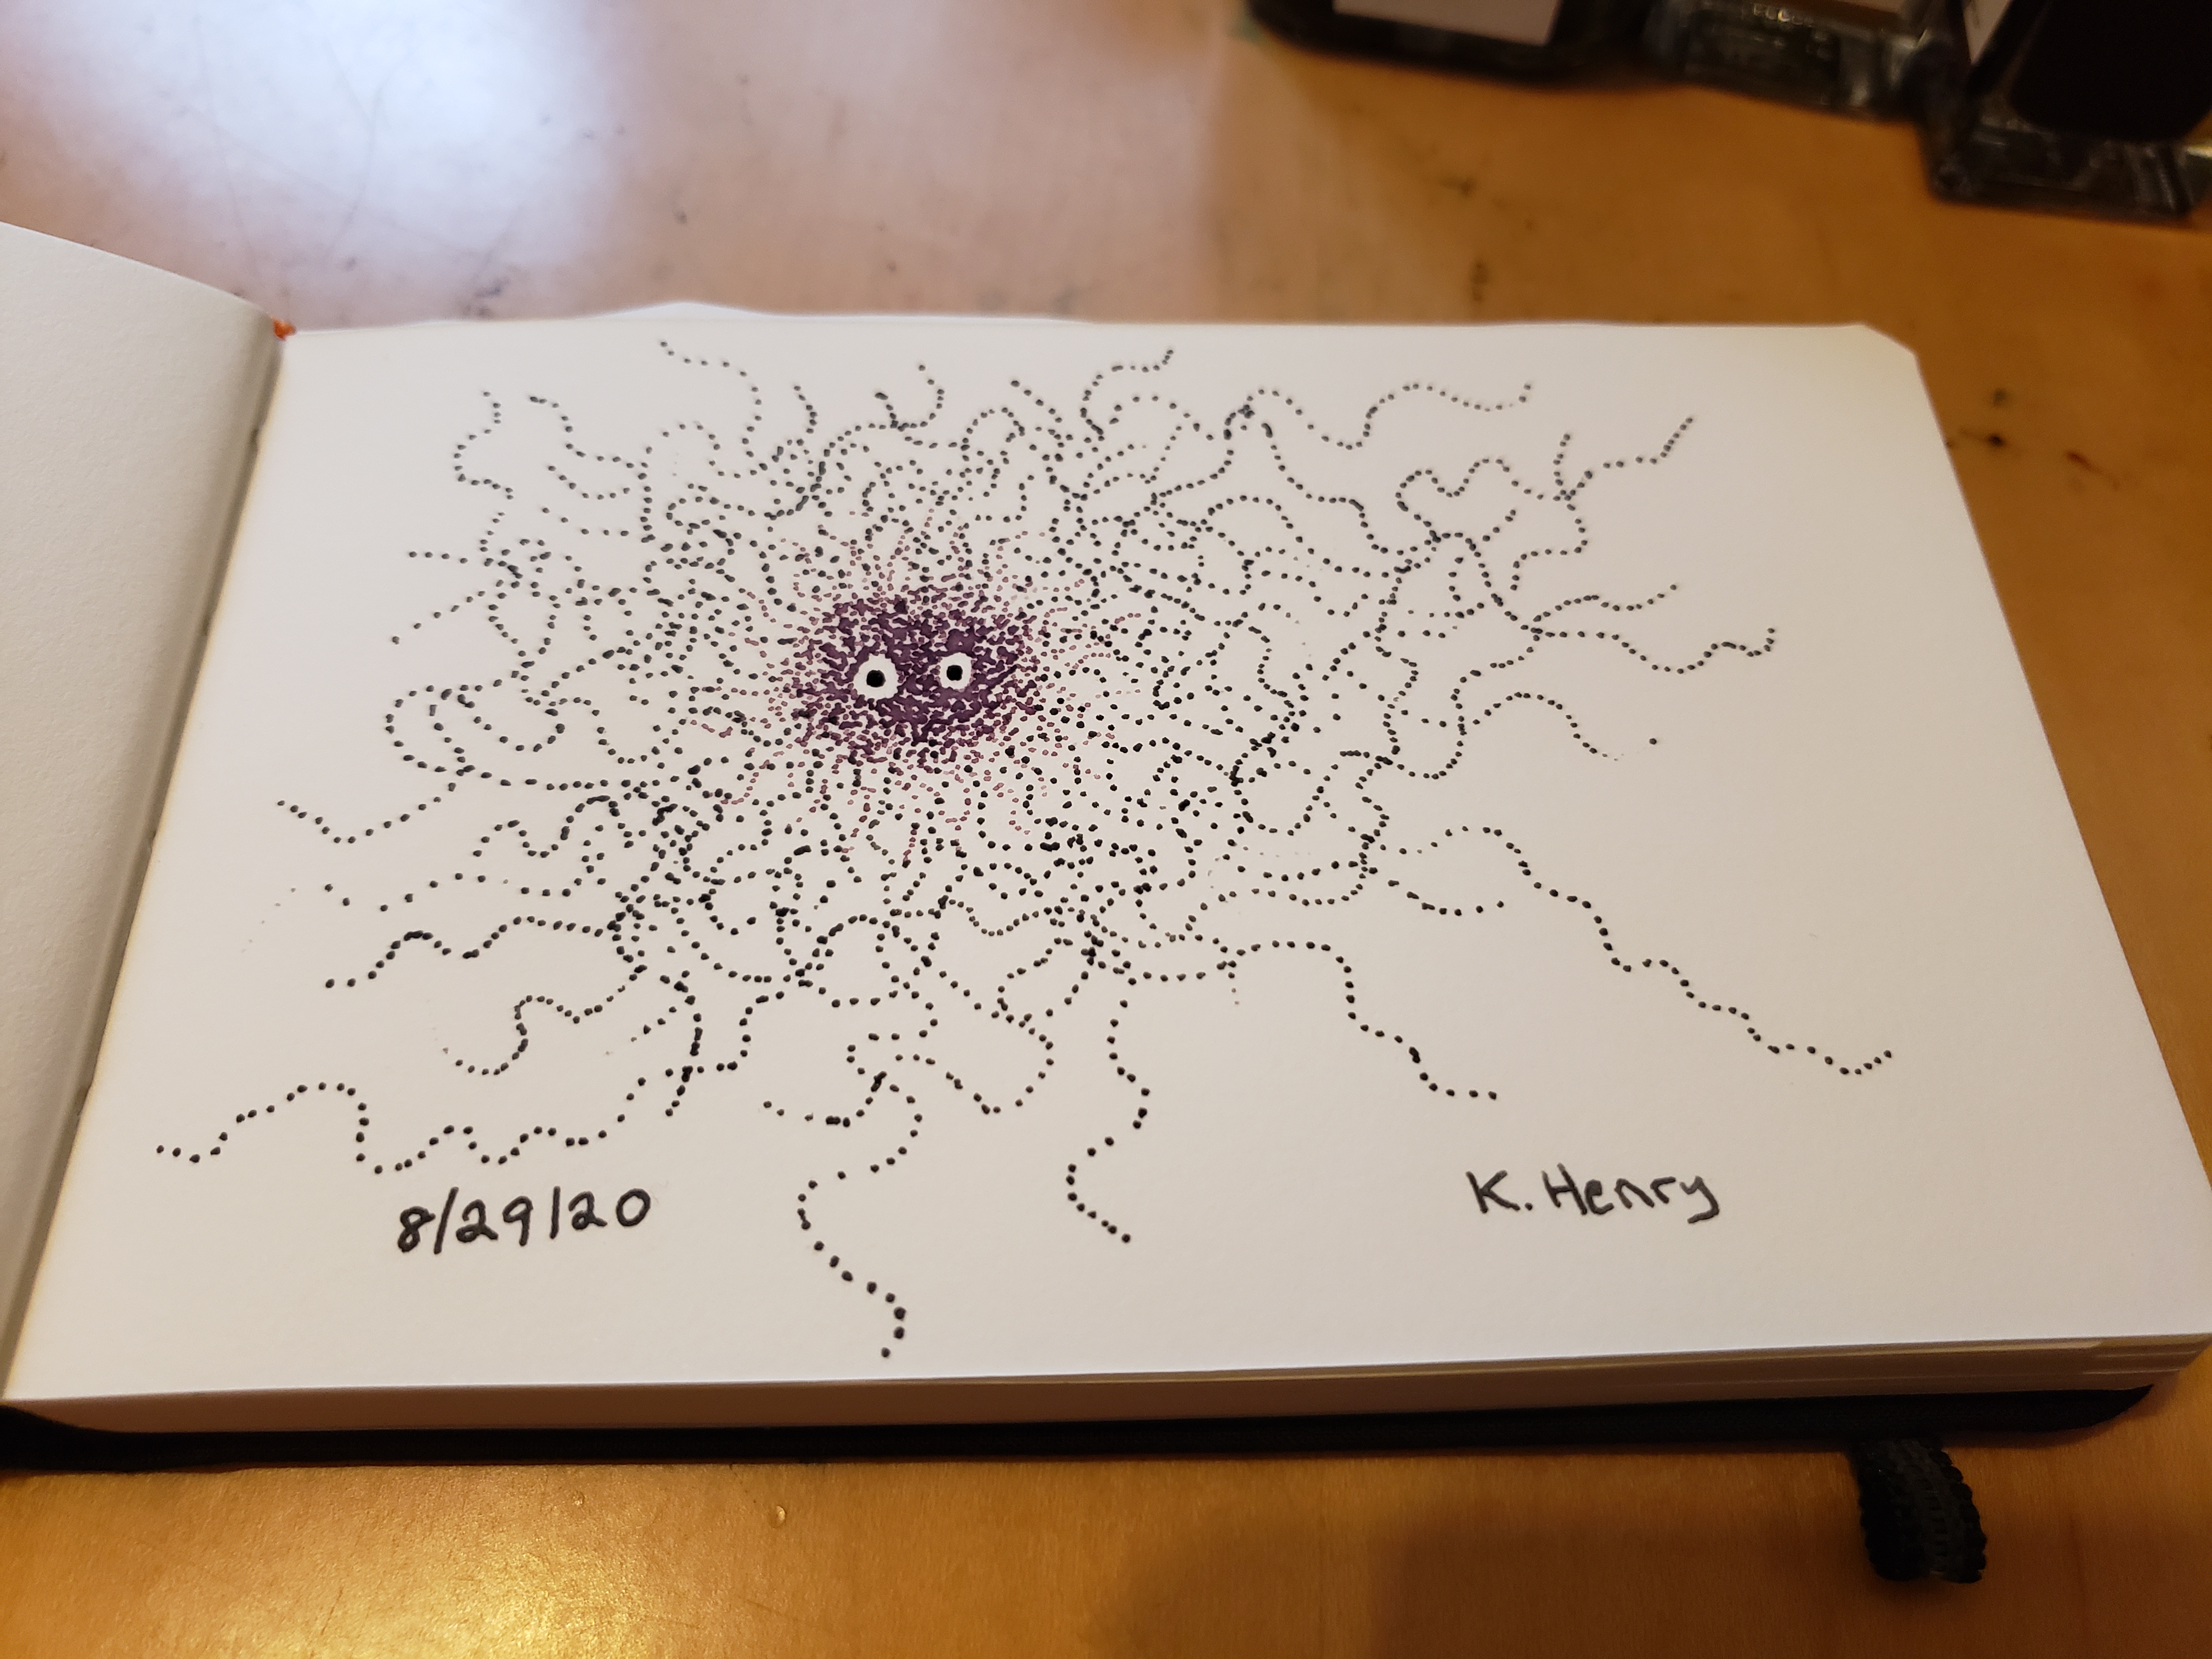 8/29/20
K. Henry